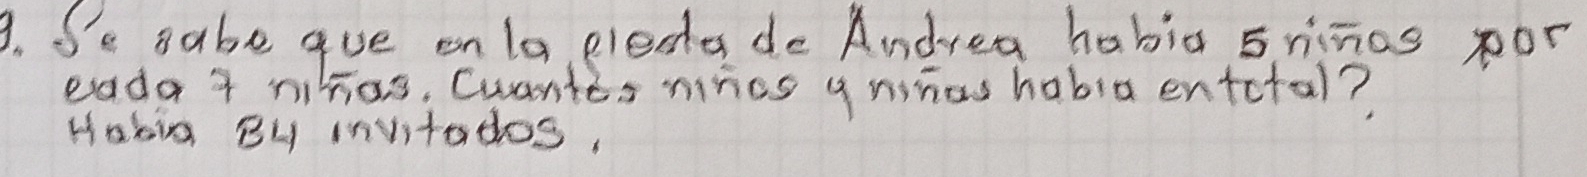 9. Se sabe que en la fiesta de Andrea habia 5 niños por
cada 7 niñas. Cuantos niños y niñas habia en total?
Habia 84 invitados.